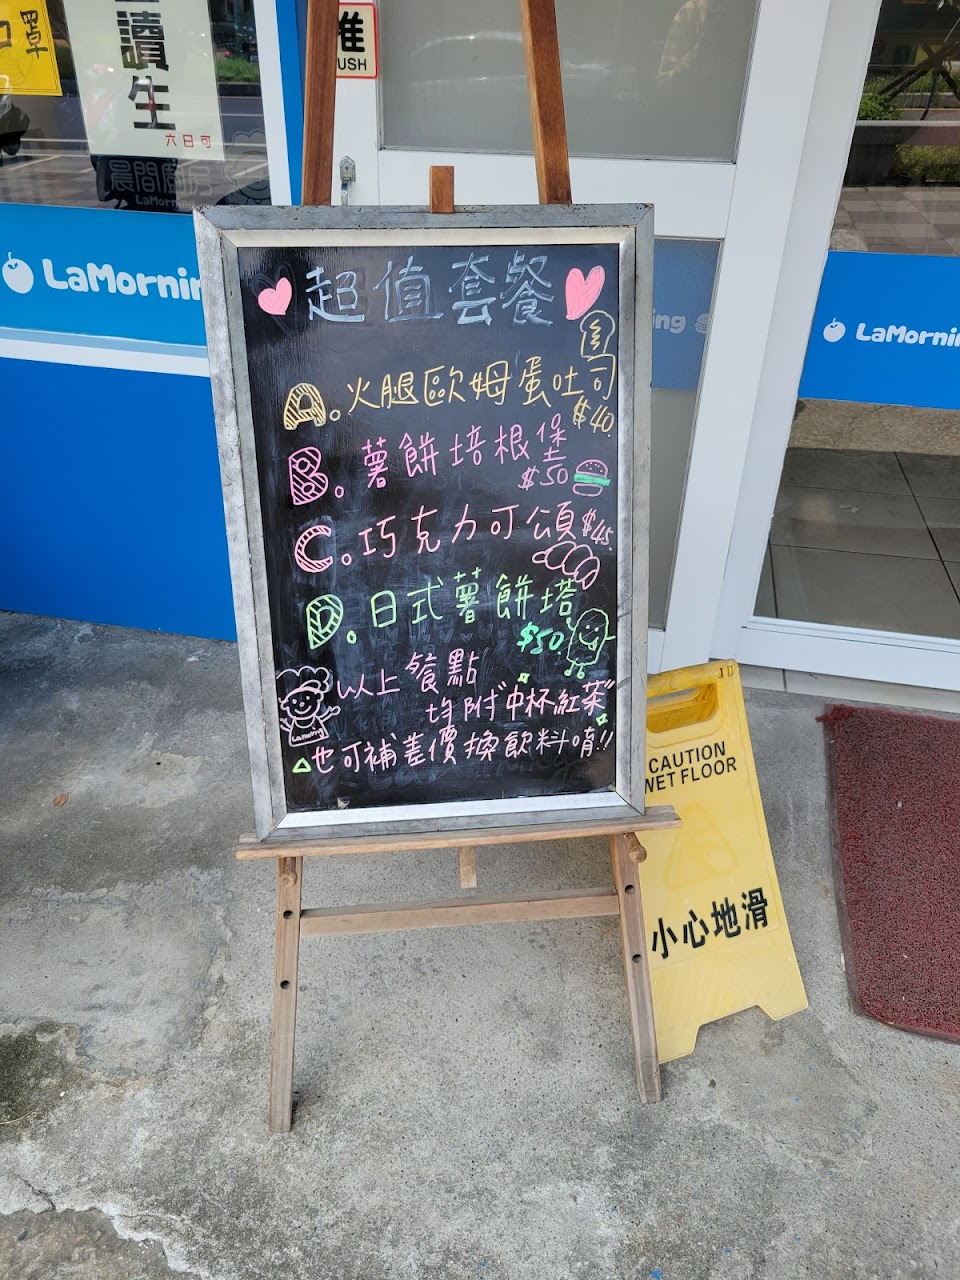 口罩
讀生
六日可
晨間廚房
LaMorning
推
PUSH
LaMorning
LaMorning
超值套餐
A。火腿歐姆蛋吐司
$40.
B。薯餅培根堡
$50
C。巧克力可頌$45.
D。日式薯餅塔
$50.
以上餐點
均附"中杯紅茶"
也可補差價換飲料唷!!
CAUTION
WET FLOOR
小心地滑